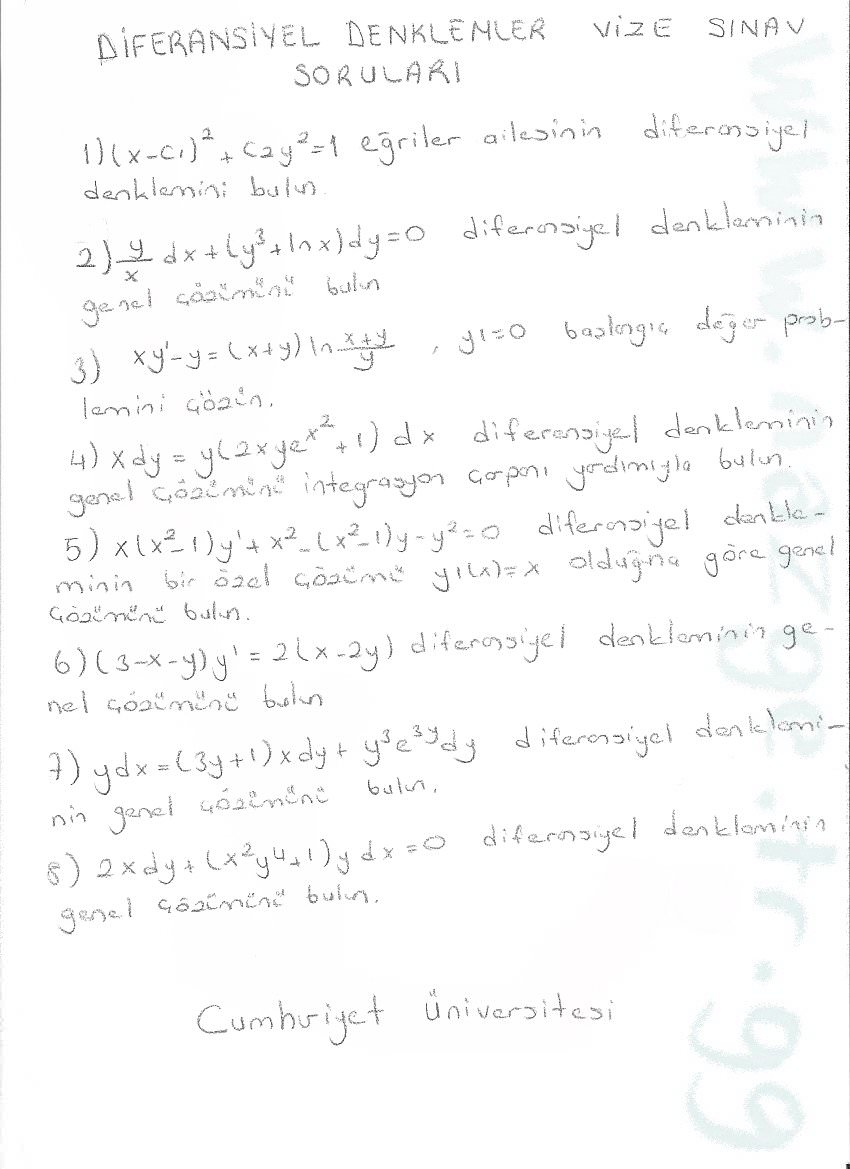 DİFERANSİYEL DENKLEMLER VİZE SINAV
SORULARI
1) (x-c₁)² + c₂y²=1 eğriler ailesinin diferansiyel
denklemini bulun.
2) y/x dx + (y³+lnx)dy=0 diferansiyel denkleminin
genel çözümünü bulun
3) xy'-y = (x+y) ln (x+y)/y , y1=0 başlangıç değer prob-
lemini çözün.
4) x dy = y(2xye^x² + 1) dx diferensiyel denkleminin
genel çözümünü integrasyon çarpanı yardımıyla bulun.
5) x(x²-1)y' + x² - (x²-1)y - y² = 0 diferansiyel denkle-
minin bir özel çözümü y1(x)=x olduğuna göre genel
çözümünü bulun.
6) (3-x-y)y' = 2(x-2y) diferansiyel denkleminin ge-
nel çözümünü bulun
7) ydx = (3y+1)xdy + y³e^3y dy diferansiyel denklemi-
nin genel çözümünü bulun.
8) 2xdy + (x²y⁴+1)y dx = 0 diferansiyel denkleminin
genel çözümünü bulun.
Cumhuriyet Üniversitesi
www.naz9e.tr.gg